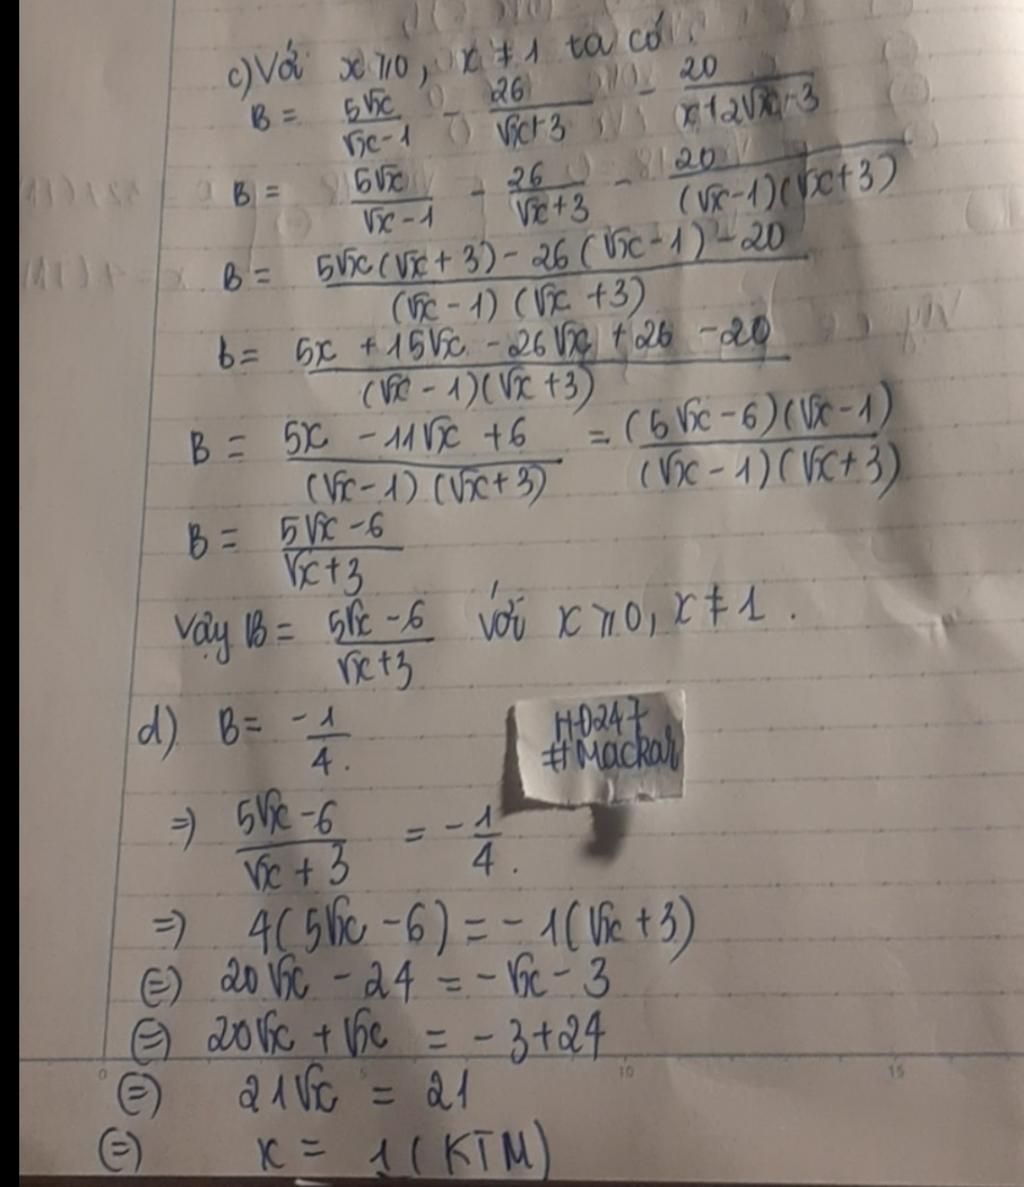 c) Với x ⩾ 0, x ≠ 1 ta có:
B = 5√x/(√x - 1) - 26/(√x + 3) - 20/(x + 2√x - 3)
B = 5√x/(√x - 1) - 26/(√x + 3) - 20/((√x - 1)(√x + 3))
B = (5√x(√x + 3) - 26(√x - 1) - 20)/((√x - 1)(√x + 3))
b = (5x + 15√x - 26√x + 26 - 20)/((√x - 1)(√x + 3))
B = (5x - 11√x + 6)/((√x - 1)(√x + 3)) = ((5√x - 6)(√x - 1))/((√x - 1)(√x + 3))
B = (5√x - 6)/(√x + 3)
Vậy B = (5√x - 6)/(√x + 3) với x ⩾ 0, x ≠ 1.
d) B = -1/4.
HD247
#Mackar
⇒ (5√x - 6)/(√x + 3) = -1/4.
⇒ 4(5√x - 6) = -1(√x + 3)
⇔ 20√x - 24 = -√x - 3
⇔ 20√x + √x = -3 + 24
⇔ 21√x = 21
⇔ x = 1 (KTM)
0 5 10 15